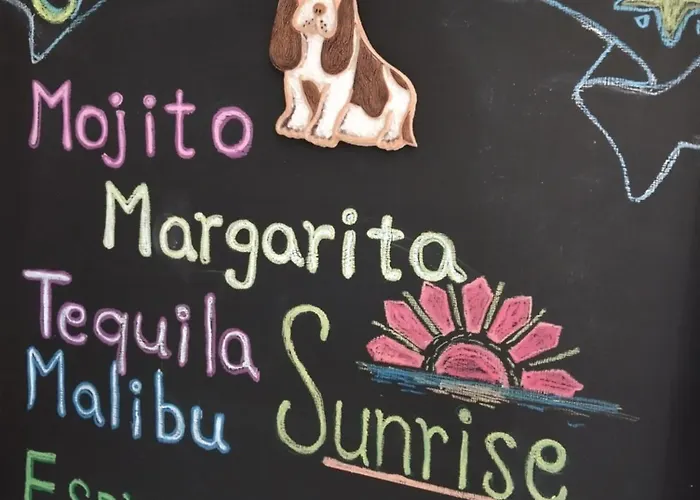 Mojito
Margarita
Tequila
Sunrise
Malibu